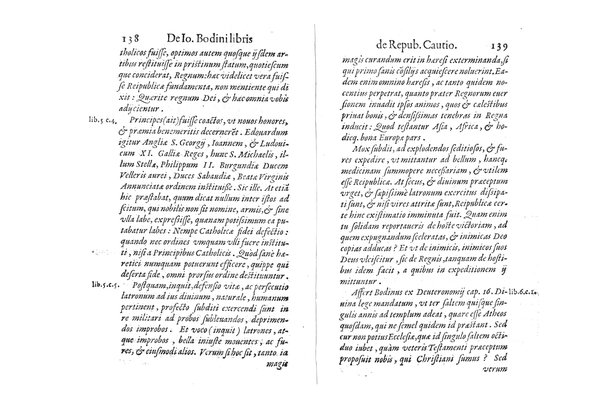 138 De Io. Bodini libris
tholicos fuisse, optimos autem quosque ijsdem ar-
tibus restituisse in pristinum statum, quotiescum
que conciderat, Regnum: hæc videlicet vera fuis-
se Reipublicæ fundamenta, non mentiente qui di-
xit: Quærite regnum Dei, & hæc omnia vobis
adijcientur.
lib.5 c.4. Principes (ait) fuisse coactos, vt nouos honores,
& præmia benemeritis decernerēt. Edouardum
igitur Angliæ S. Georgij, Ioannem, & Ludoui-
cum XI. Galliæ Reges, hunc S. Michaelis, il-
lum Stellæ, Philippum II. Burgundiæ Ducem
Velleris aurei, Duces Sabaudiæ, Beatæ Virginis
Annunciatæ ordinem instituisse. Sic ille. At etiā
hic præstabat, quum dicat nullum inter istos ad
scitum, qui nobilis non sit nomine, armis, & sine
vlla labe, expressisse, quanam potissimum ea pu-
tabatur labes: Nempe Catholicæ fidei defectio:
quando nec ordines vmquam vlli fuere institu-
ti, nisi a Principibus Catholicis. Quod sanè hæ-
retici numquam potuerunt efficere, quippe qui
deserta fide, omni prorsus ordine destituuntur.
lib.5.c.5. Postquam, inquit, defensio vitæ, ac persecutio
latronum ad ius diuinum, naturale, humanum
pertinent, profectò subditi exercendi sunt in
re militari ad probos subleuandos, deprimen-
dos improbos. Et voco (inquit) latrones, at-
que improbos, bella iniustè mouentes, ac fu-
res, & eiusmodi alios. Verum si hoc sit, tanto ia
magis
de Repub. Cautio. 139
magis curandum erit in hæresi exterminanda, si
qui primo sanis cōsilijs acquiescere noluerint, Ea-
dem enim omnino hæresis, ac tanto quidem no-
centius perpetrat, quanto præter Regnorum euer
sionem inuadit ipsos animos, quos & cælestibus
priuat bonis, & densissimas tenebras in Regna
inducit: Quod testantur Asia, Africa, & ho-
dieq. bona Europæ pars.
Mox subdit, ad explodendos seditiosos, & fu-
res expedire, vt mittantur ad bellum, hancq.
medicinam summopere necessariam, & vtilem
esse Reipublicæ. At secus, & diuinum præceptum
vrget, & sæpissimè latronum exercitus dissipa-
ti sunt, & nisi vires attritæ sunt, Reipublicæ cer-
te hinc existimatio imminuta fuit. Quam enim
tu solidam reportaueris de hoste victoriam, ad
quem expugnandum sceleratos, & inimicas Deo
copias adduces? Et vt de inimicis, inimicos suos
Deus vlciscitur, sic de Regnis, tanquam de hosti-
bus idem facit, a quibus in expeditionem ij
mittuntur.
Affert Bodinus ex Deuteronomij cap. 16. Di- lib.6.c.2.
uina lege mandatum, vt ter saltem quisque sin-
gulis annis ad templum adeat, quare esse Atheos
quosdam, qui ne semel quidem id præstant. Sed
cur non potius Ecclesiæ, quæ id singulo saltem octi
duo iubet, quàm veteris Testamenti præceptum
proposuit nobis, qui Christiani sumus? Sed
verum